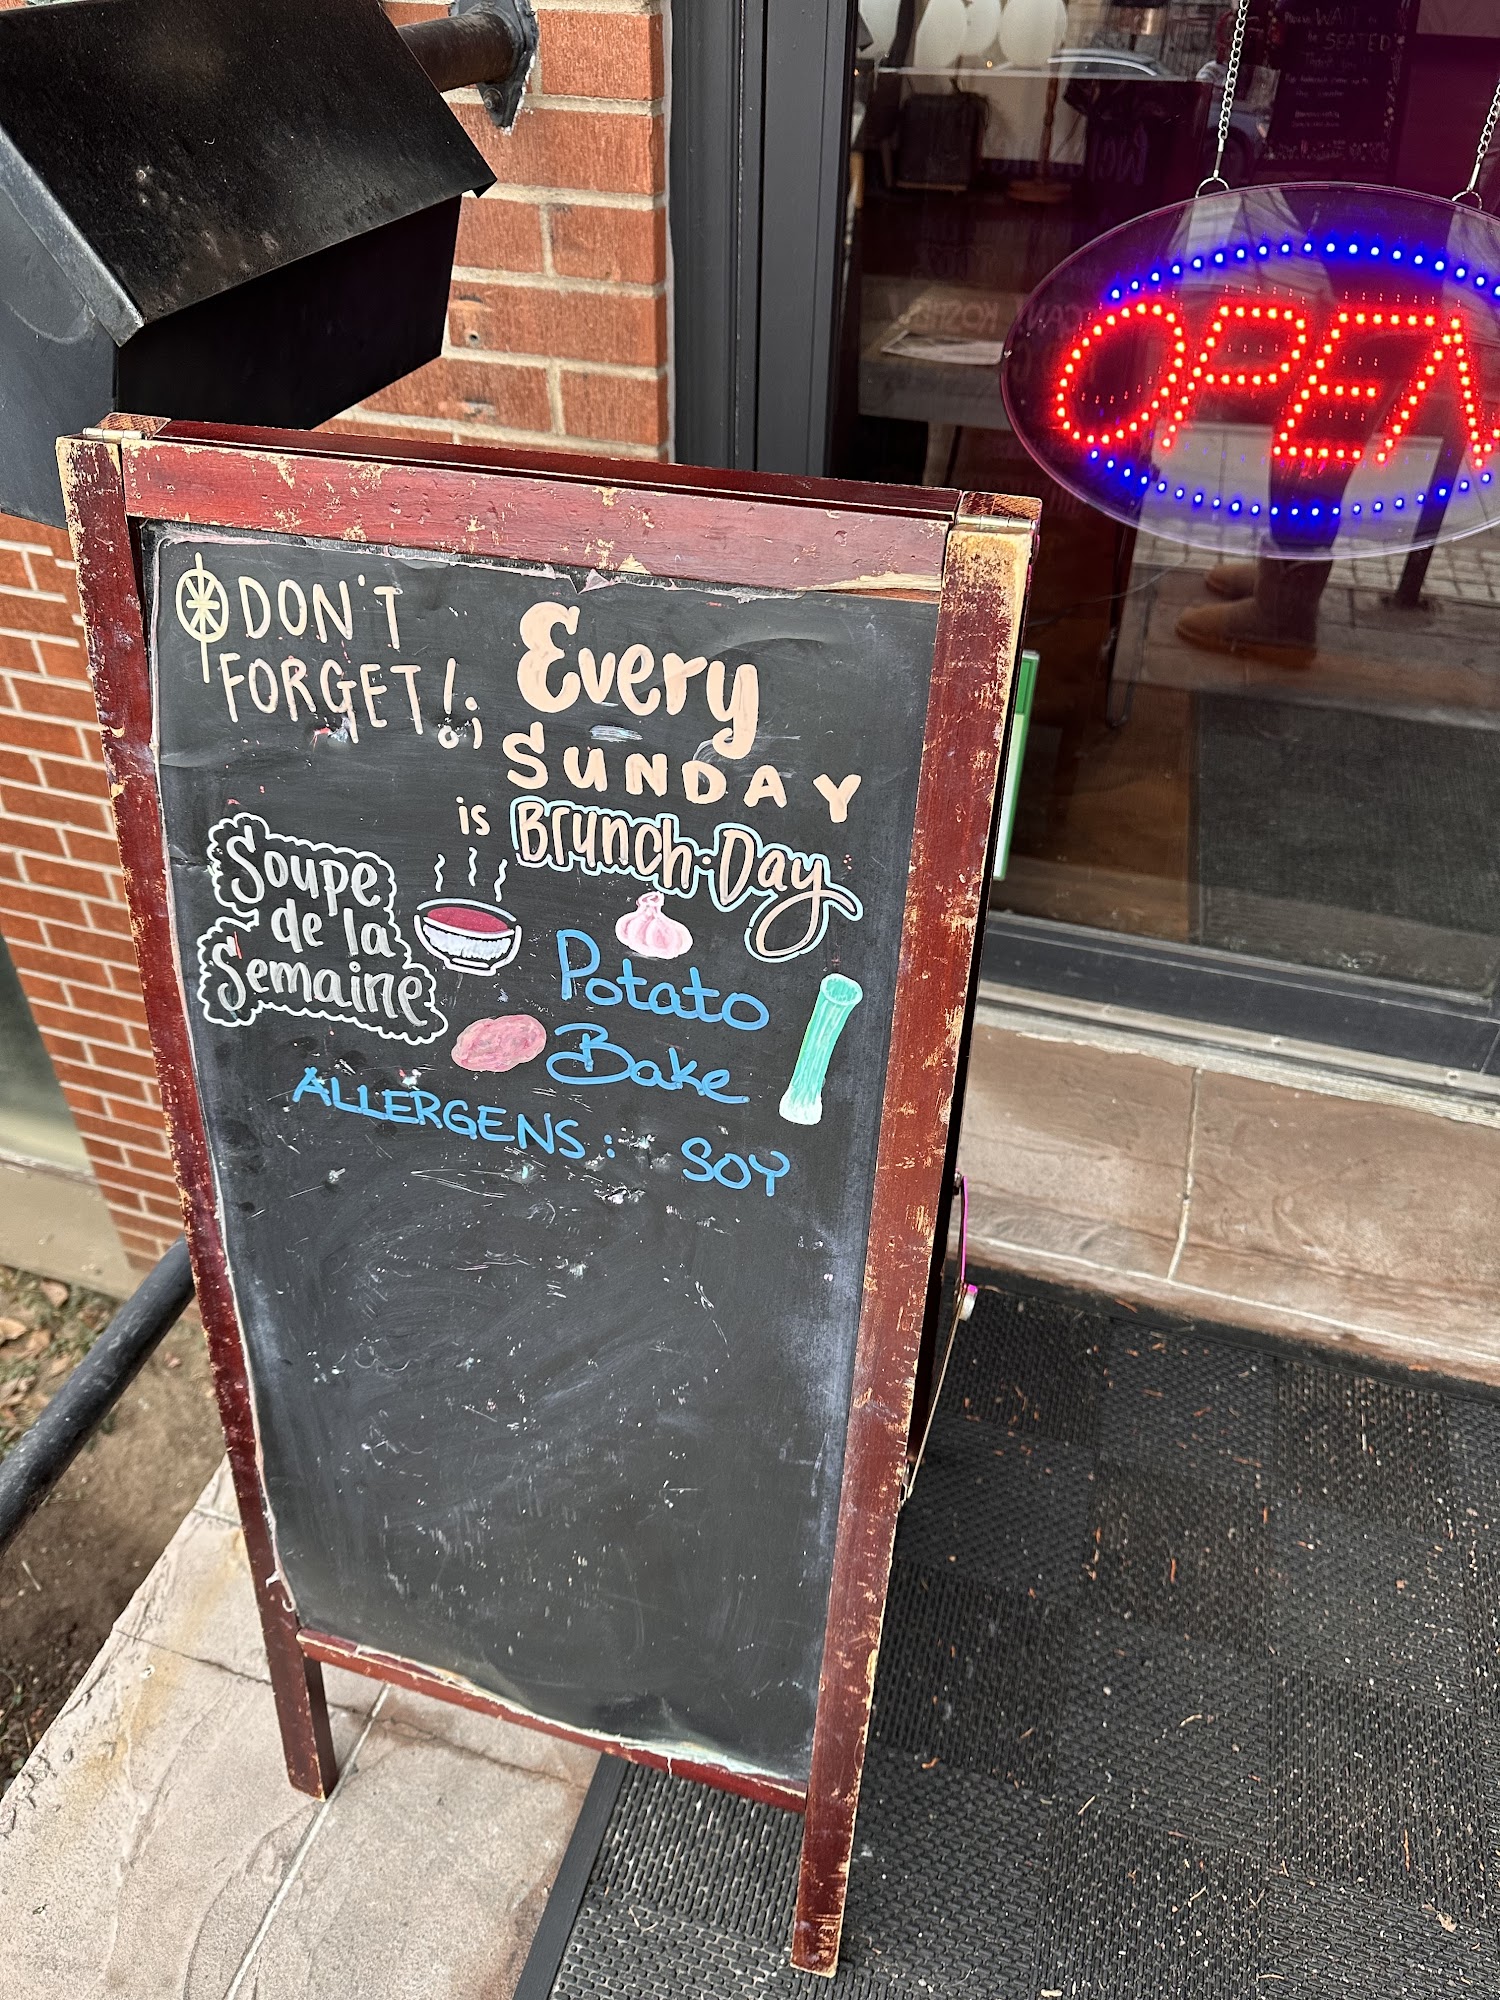 DON'T
FORGET!
Every
SUNDAY
is Brunch·Day
Soupe
de la
Semaine
Potato
Bake
ALLERGENS: SOY
OPEN
Please WAIT to
be SEATED